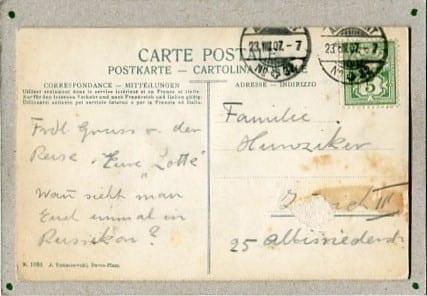 CARTE POSTALE
POSTKARTE - CARTOLINA
CORRESPONDANCE - MITTEILUNGEN
Utilizer seulement dans le service intérieur et en France et Italie
Für den internen Verkehr und nach Frankreich und Italien gültig.
Utilizzarsi soltanto pel servizio interno e per la Francia ed Italia.
Frdl. Gruss v. der
Reise Eure "Lotte"
Wann sieht man
Euch einmal in
Russikon?
ADRESSE - INDIRIZZO
Familie
Hunziker
Zürich III
25 Albisriederstr
23.VIII.07.-7
23.VIII.07.-7
5
J. Tomaszewski, Davos-Platz.